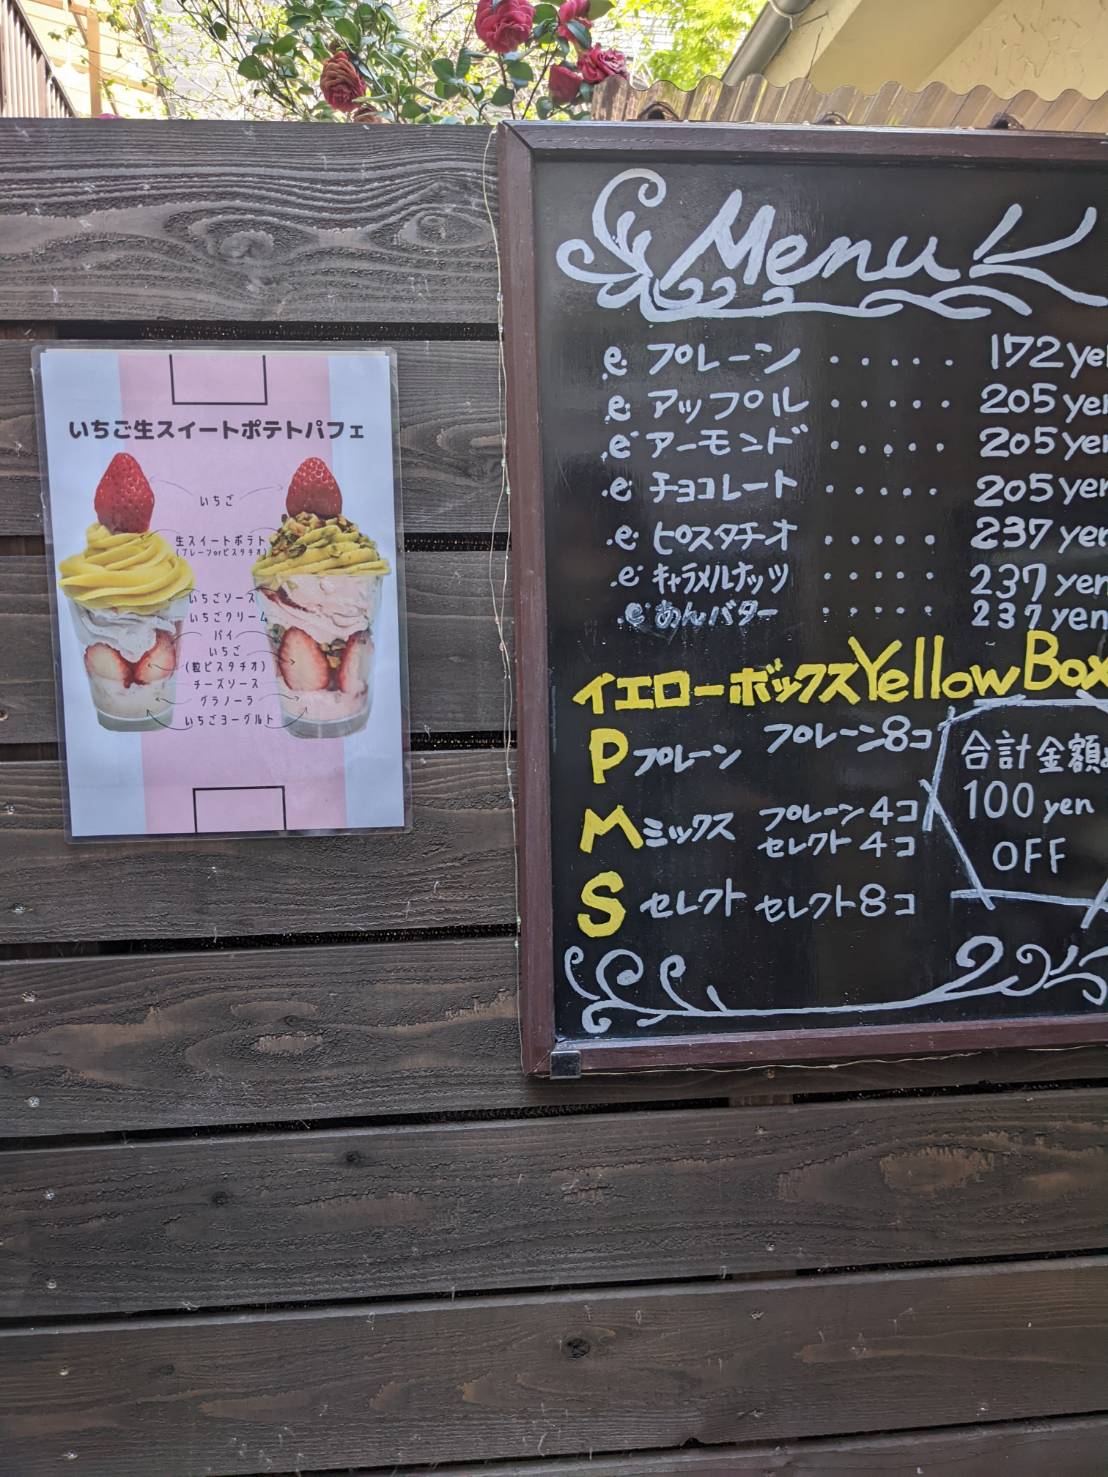 いちご生スイートポテトパフェ
いちご
生スイートポテト
(プレーンorピスタチオ)
いちごソース
いちごクリーム
パイ
いちご
(粒ピスタチオ)
チーズソース
グラノーラ
いちごヨーグルト
Menu
プレーン ..... 172 yen
アップル ..... 205 yen
アーモンド ..... 205 yen
チョコレート ..... 205 yen
ピスタチオ ..... 237 yen
キャラメルナッツ ..... 237 yen
あんバター ..... 237 yen
イエローボックス Yellow Box
P プレーン プレーン8コ
M ミックス プレーン4コ
セレクト4コ
S セレクト セレクト8コ
合計金額
100 yen
OFF